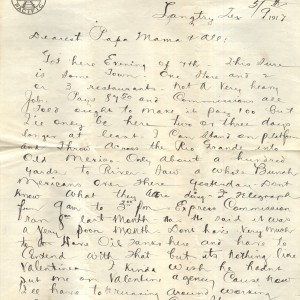 Langtry Tex 3/9th 1917
Dearest Papa Mama & All:
Got here Evening of 7th. This Sure
is some Town. One Store and 2
or 3 restaurants. Not a Very heavy
Job. Pays $7500 and Commissions all
Told ought to make it pay 100 But
I'll only be here two or three days
longer at least. I Can Stand on platform
and Throw Across the Rio Grande into
Old Mexico Only about a hundred
yards to River Saw a whole Bunch
Mexicans over There yesterday. Dont
Know What this day. I Telegraph
from 9am to 3pm Express Commission
Ran last Month. he Said it was
a Very poor Month. Dont have Very much
to do Have Oil Tanks here and have to
Contend With That but its Nothing like
Valentine. I kinda wish he hadnt
put me on Valentine Agency Cause Now
I'll have to around